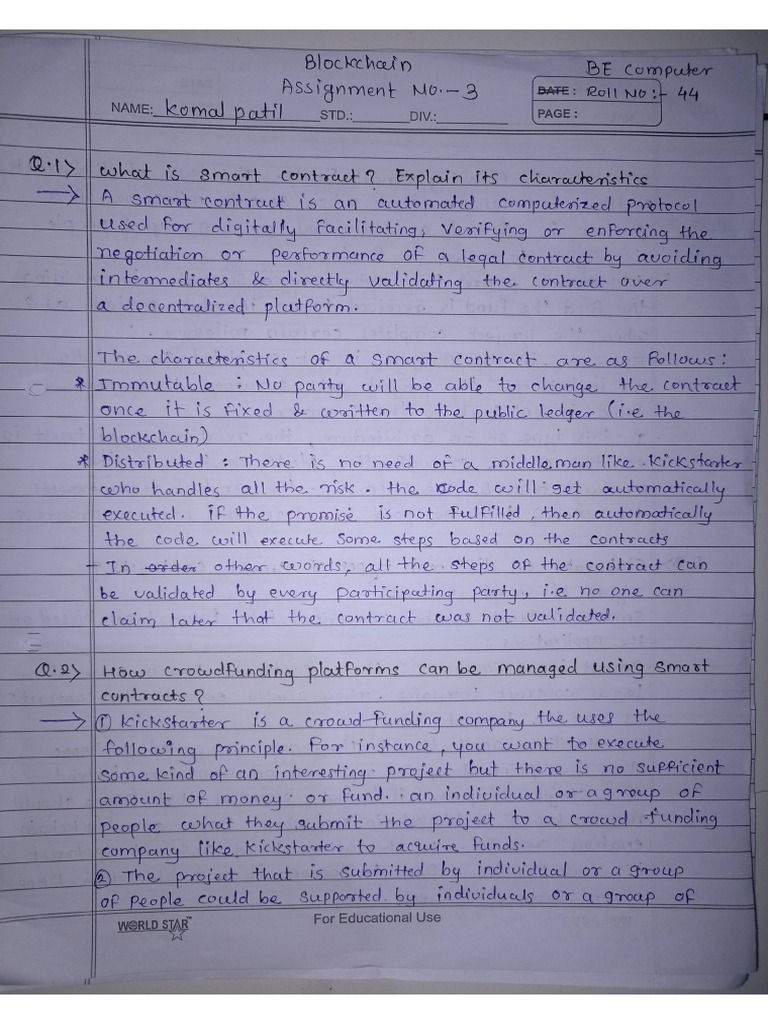 Blockchain
BE Computer
Assignment No.-3
DATE: Roll No:- 44
NAME: Komal patil STD.: DIV.: PAGE:
Q.1> What is smart contract? Explain its characteristics
→ A smart contract is an automated computerized protocol
used for digitally facilitating, verifying or enforcing the
negotiation or performance of a legal contract by avoiding
intermediates & directly validating the contract over
a decentralized platform.
The characteristics of a smart contract are as follows:
* Immutable: No party will be able to change the contract
once it is fixed & written to the public ledger (i.e the
blockchain)
* Distributed: There is no need of a middleman like kickstarter
who handles all the risk. the code will get automatically
executed. if the promise is not fulfilled, then automatically
the code will execute some steps based on the contracts
- In order other words, all the steps of the contract can
be validated by every participating party, i.e no one can
claim later that the contract was not validated.
Q.2> How crowdfunding platforms can be managed using smart
contracts?
→ ① Kickstarter is a crowd-funding company the uses the
following principle. For instance, you want to execute
some kind of an interesting project but there is no sufficient
amount of money or fund. an individual or a group of
people what they submit the project to a crowd funding
company like kickstarter to acquire funds.
② The project that is submitted by individual or a group
of people could be supported by individuals or a group of
WORLD STAR™
For Educational Use